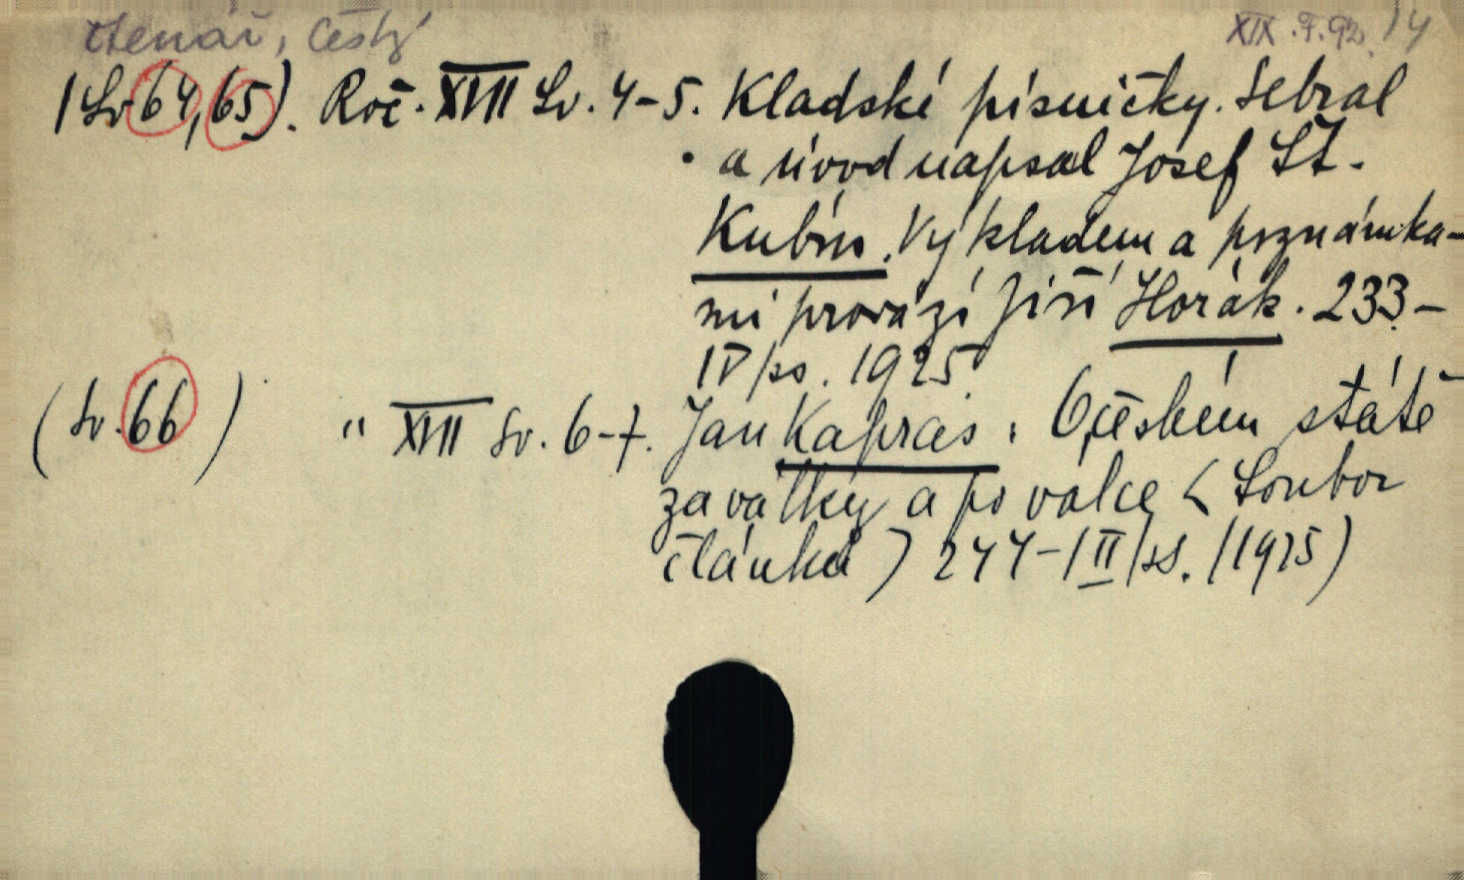 čtenář, Český XIX.F.92. /4
(Sv. 64, 65). Roč. XVII Sv. 4-5. Kladské písničky. Sebral
a úvod napsal Josef Št.
Kubín. Výkladem a poznámka-
mi provází Jiří Horák. 233-
IV/ss. 1925
(Sv. 66) " XVII Sv. 6-7. Jan Kapras: O českém státě
za války a po válce (Soubor
článků) 244-III/ss. (1925)